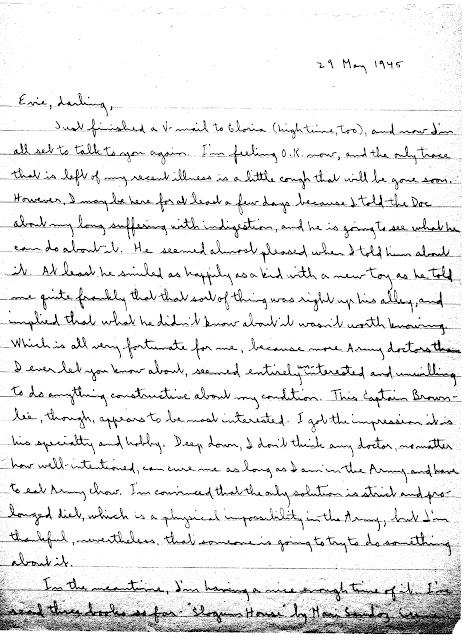 29 May 1945
Evie, darling,
Just finished a V-mail to Gloria (high time, too), and now I'm
all set to talk to you again. I'm feeling O.K. now, and the only trace
that is left of my recent illness is a little cough that will be gone soon.
However, I may be here for at least a few days because I told the Doc
about my long suffering with indigestion, and he is going to see what he
can do about it. He seemed almost pleased when I told him about
it. At least he smiled as happily as a kid with a new toy as he told
me quite frankly that that sort of thing was right up his alley, and
implied that what he didn't know about it wasn't worth knowing.
Which is all very fortunate for me, because more Army doctors than
I ever let you know about, seemed entirely uninterested and unwilling
to do anything constructive about my condition. This Captain Brown-
lee, though, appears to be most interested. I got the impression it is
his specialty and hobby. Deep down, I don't think any doctor, no matter
how well-intentioned, can cure me as long as I am in the Army and have
to eat Army chow. I'm convinced that the only solution is strict and pro-
longed diet, which is a physical impossibility in the Army, but I'm
thankful, nevertheless, that someone is going to try to do something
about it.
In the meantime, I'm having a nice enough time of it. I've
read three books so far - "Slogum House" by Mari Sandoz,